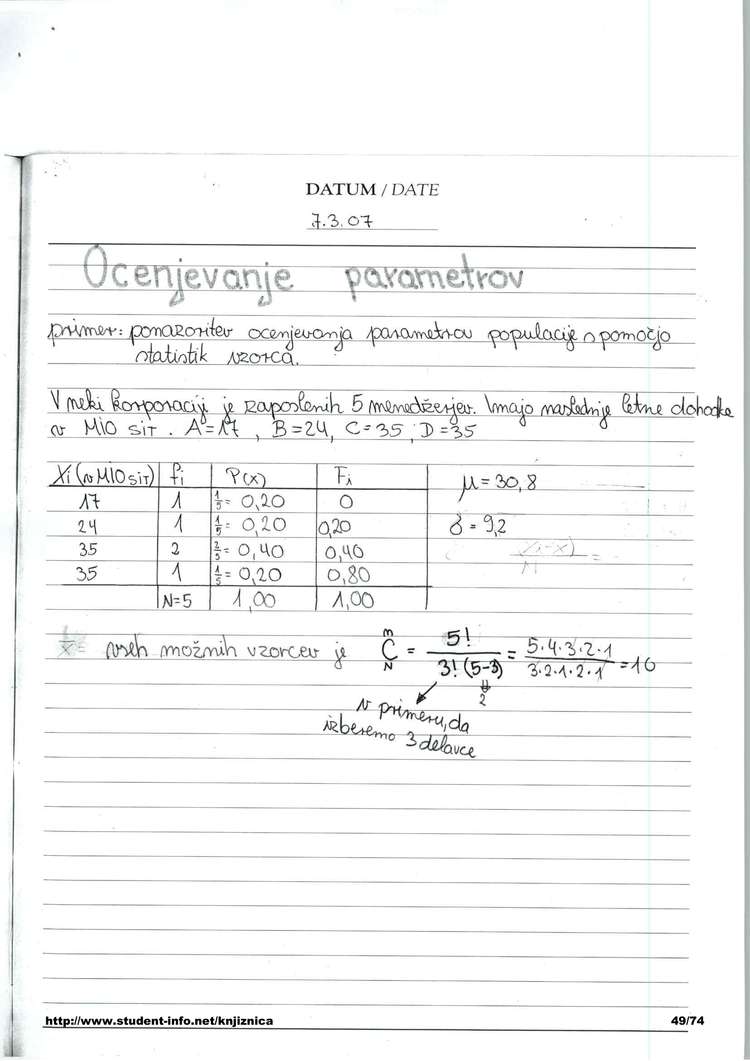 DATUM / DATE
7.3.07
Ocenjevanje parametrov
primer: ponazoritev ocenjevanja parametrov populacije s pomočjo
statistik vzorca.
V neki korporaciji je zaposlenih 5 menedžerjev. Imajo naslednje letne dohodke
v MIO SIT. A=17, B=24, C=35, D=35
Xi (v MIO SIT) fi P(x) Fi μ = 30,8
17 1 1/5 = 0,20 0
24 1 1/5 = 0,20 0,20 δ = 9,2
35 2 2/5 = 0,40 0,40
35 1 1/5 = 0,20 0,80
N=5 1,00 1,00
vseh možnih vzorcev je m C N = 5! / 3! (5-3) = 5.4.3.2.1 / 3.2.1.2.1 = 10
2
v primeru, da
izberemo 3 delavce
http://www.student-info.net/knjiznica 49/74